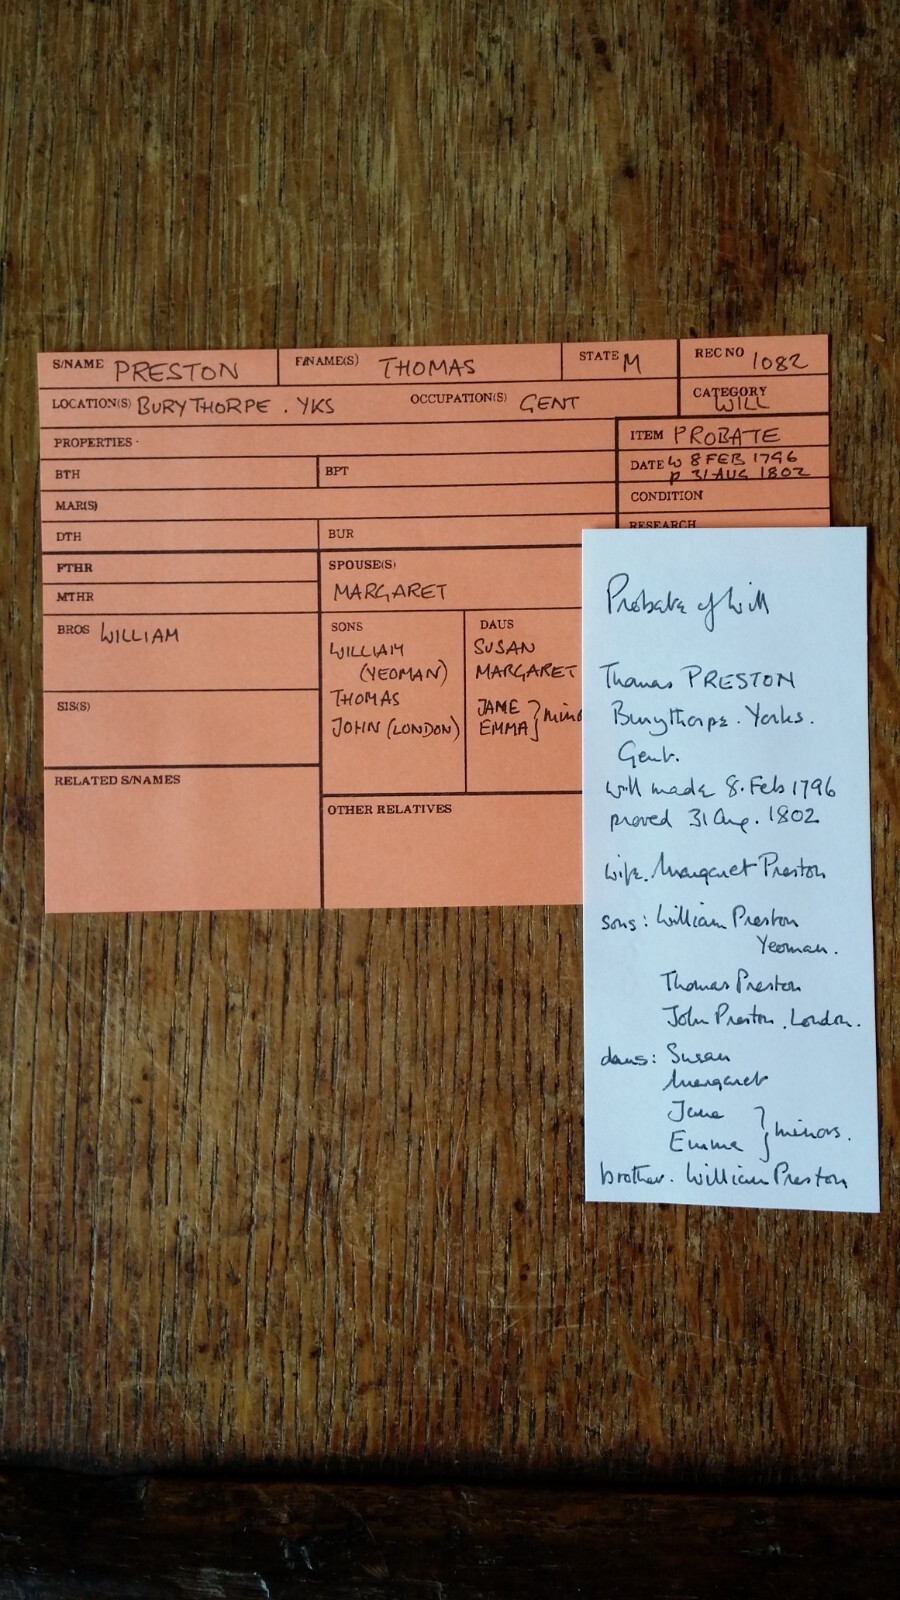 S/NAME PRESTON F/NAME(S) THOMAS STATE M REC NO 1082
LOCATION(S) BURYTHORPE . YKS OCCUPATION(S) GENT CATEGORY WILL
PROPERTIES · ITEM PROBATE
BTH BPT DATE W 8 FEB 1796
P 31 AUG 1802
MAR(S) CONDITION
DTH BUR RESEARCH
FTHR SPOUSE(S)
MTHR MARGARET
BROS WILLIAM SONS DAUS
WILLIAM SUSAN
(YEOMAN) MARGARET
SIS(S) THOMAS JANE } mino
JOHN (LONDON) EMMA
RELATED S/NAMES
OTHER RELATIVES
Probate of Will
Thomas PRESTON
Burythorpe . Yorks .
Gent .
will made 8. Feb 1796
proved 31 Aug . 1802
wife . Margaret Preston
sons : William Preston
Yeoman .
Thomas Preston
John Preston . London .
daus : Susan
Margaret
Jane } minors .
Emma
brother . William Preston